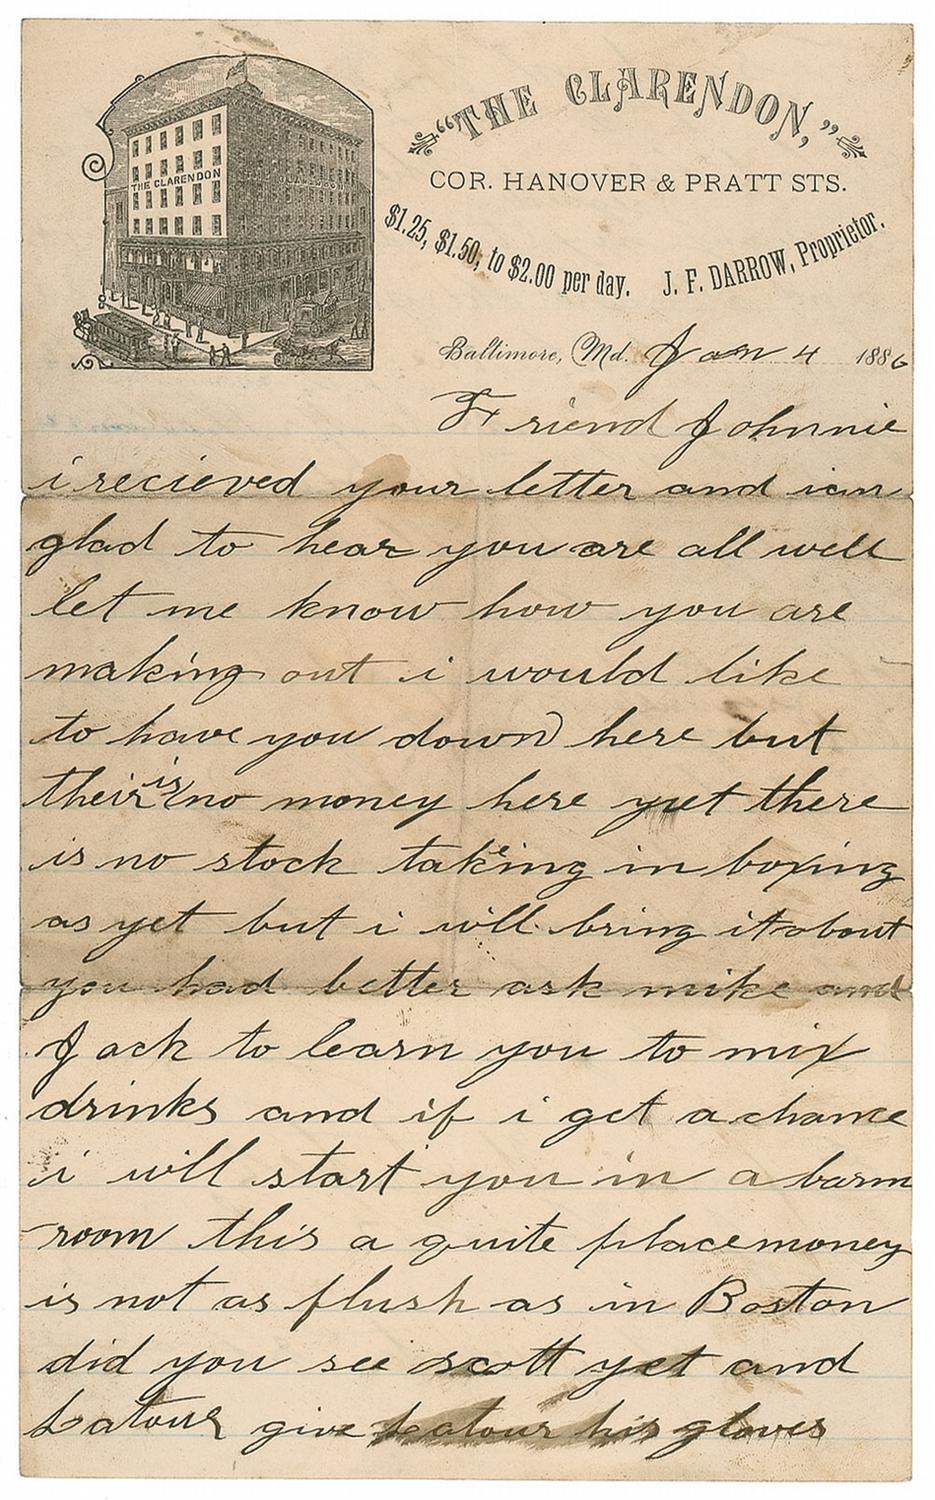 "THE CLARENDON,"
COR. HANOVER & PRATT STS.
$1.25, $1.50, to $2.00 per day. J. F. DARROW, Proprietor.
THE CLARENDON
Baltimore, Md. Jan 4 1886
Friend Johnnie
i recieved your letter and i am
glad to hear you are all well
let me know how you are
making out i would like
to have you down here but
their is no money here yet there
is no stock takeing in boxing
as yet but i will bring it about
you had better ask mike and
Jack to learn you to mix
drinks and if i get a chance
i will start you in a barm
room this a quite place money
is not as flush as in Boston
did you see scott yet and
Latour give Latour his gloves